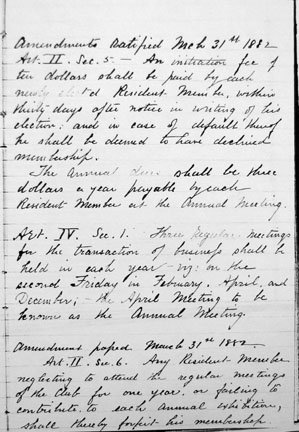 Amendments ratified Mch 31st 1882
Art. II. Sec. 5 — An initiation fee of
ten dollars shall be paid by each
newly elect'd Resident Member, within
thirty days after notice in writing of his
election; and in case of default thereof
he shall be deemed to have declined
membership.
The Annual dues shall be three
dollars a year payable by each
Resident Member at the Annual Meeting.
Art. IV. Sec. 1. Three regular meetings
for the transaction of business shall be
held in each year — viz: on the
second Friday in February, April, and
December; — the April Meeting to be
known as the Annual Meeting.
Amendment passed March 31st 1882.
Art. II. Sec. 6. Any Resident Member
neglecting to attend the regular meetings
of the club for one year, or failing to
contribute to each annual exhibition,
shall thereby forfeit his membership.